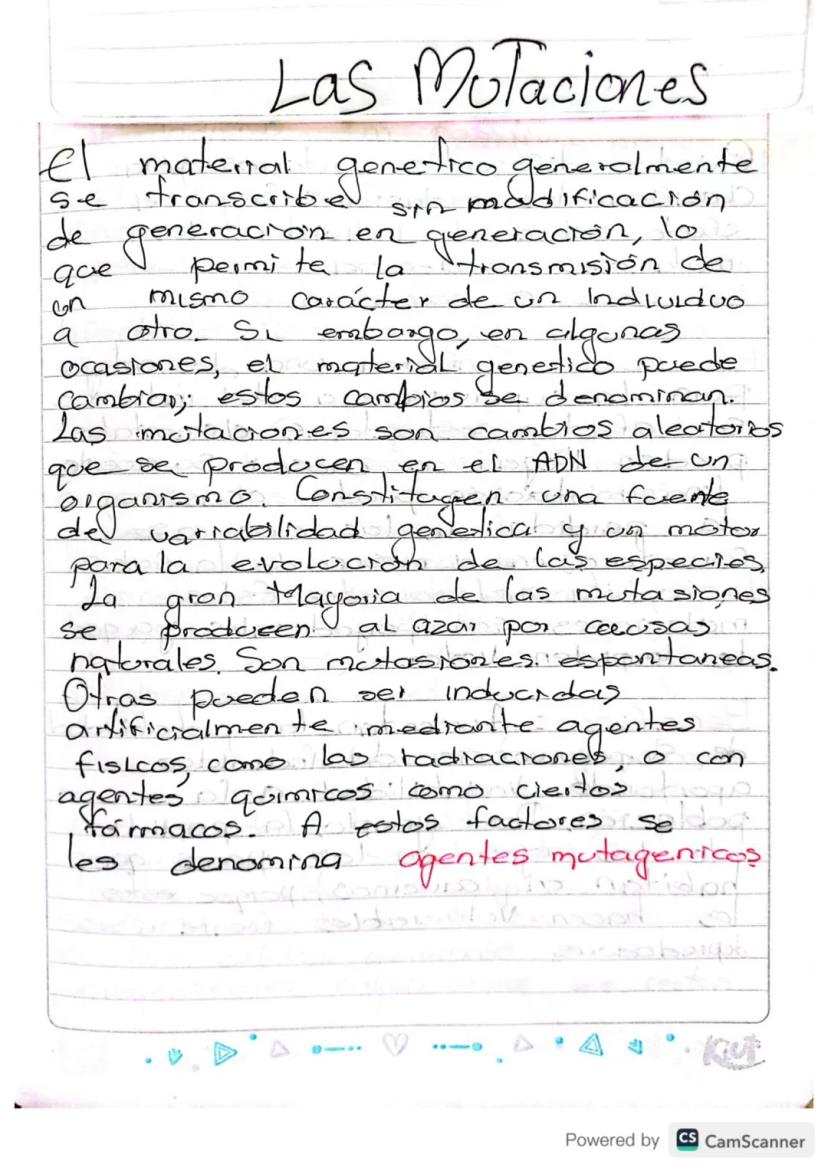 Las Mutaciones
El material genetico generalmente
se transcribe sin madificación
de generación en generación, lo
que permite la transmisión de
un mismo carácter de un Individuo
a otro. Si embargo, en algunas
ocasiones, el material genetico puede
cambiar; estos cambios se denominan.
Las mutaciones son cambios aleatorios
que se producen en el ADN de un
organismo. Constituyen una fuente
de variabilidad genetica y un motor
para la evolución de las especies.
La gran Mayoria de las mutasiones
se producen al azar por causas
naturales. Son mutasiones espontaneas.
Otras pueden ser inducidas
artificialmente mediante agentes
fisicos, como las radiaciones, o con
agentes químicos como ciertos
fármacos. A estos factores se
les denomina agentes mutagenicos
Kiut
Powered by CS CamScanner